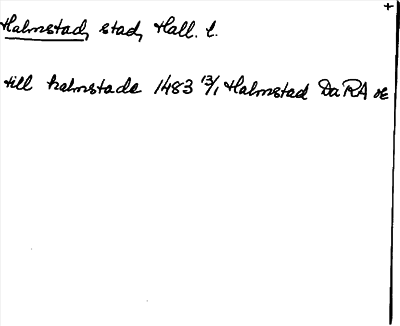 +
Halmstad, stad, Hall. l.
till halmstade 1483 13/1 Halmstad DaRA or